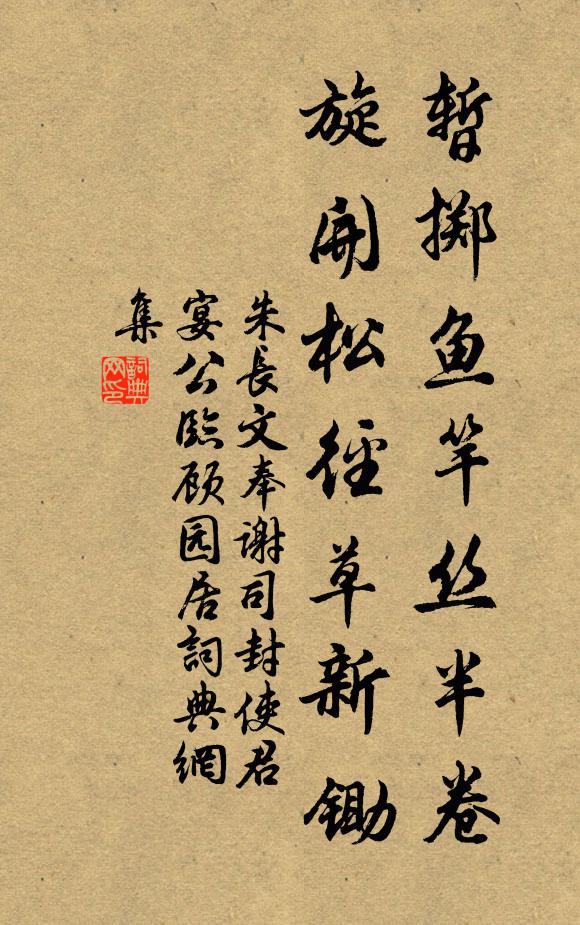 暂掷鱼竿丝半卷
旋開松径草新锄
朱長文奉谢司封使君
宴公临顾园居詞典網
集
詞典网印